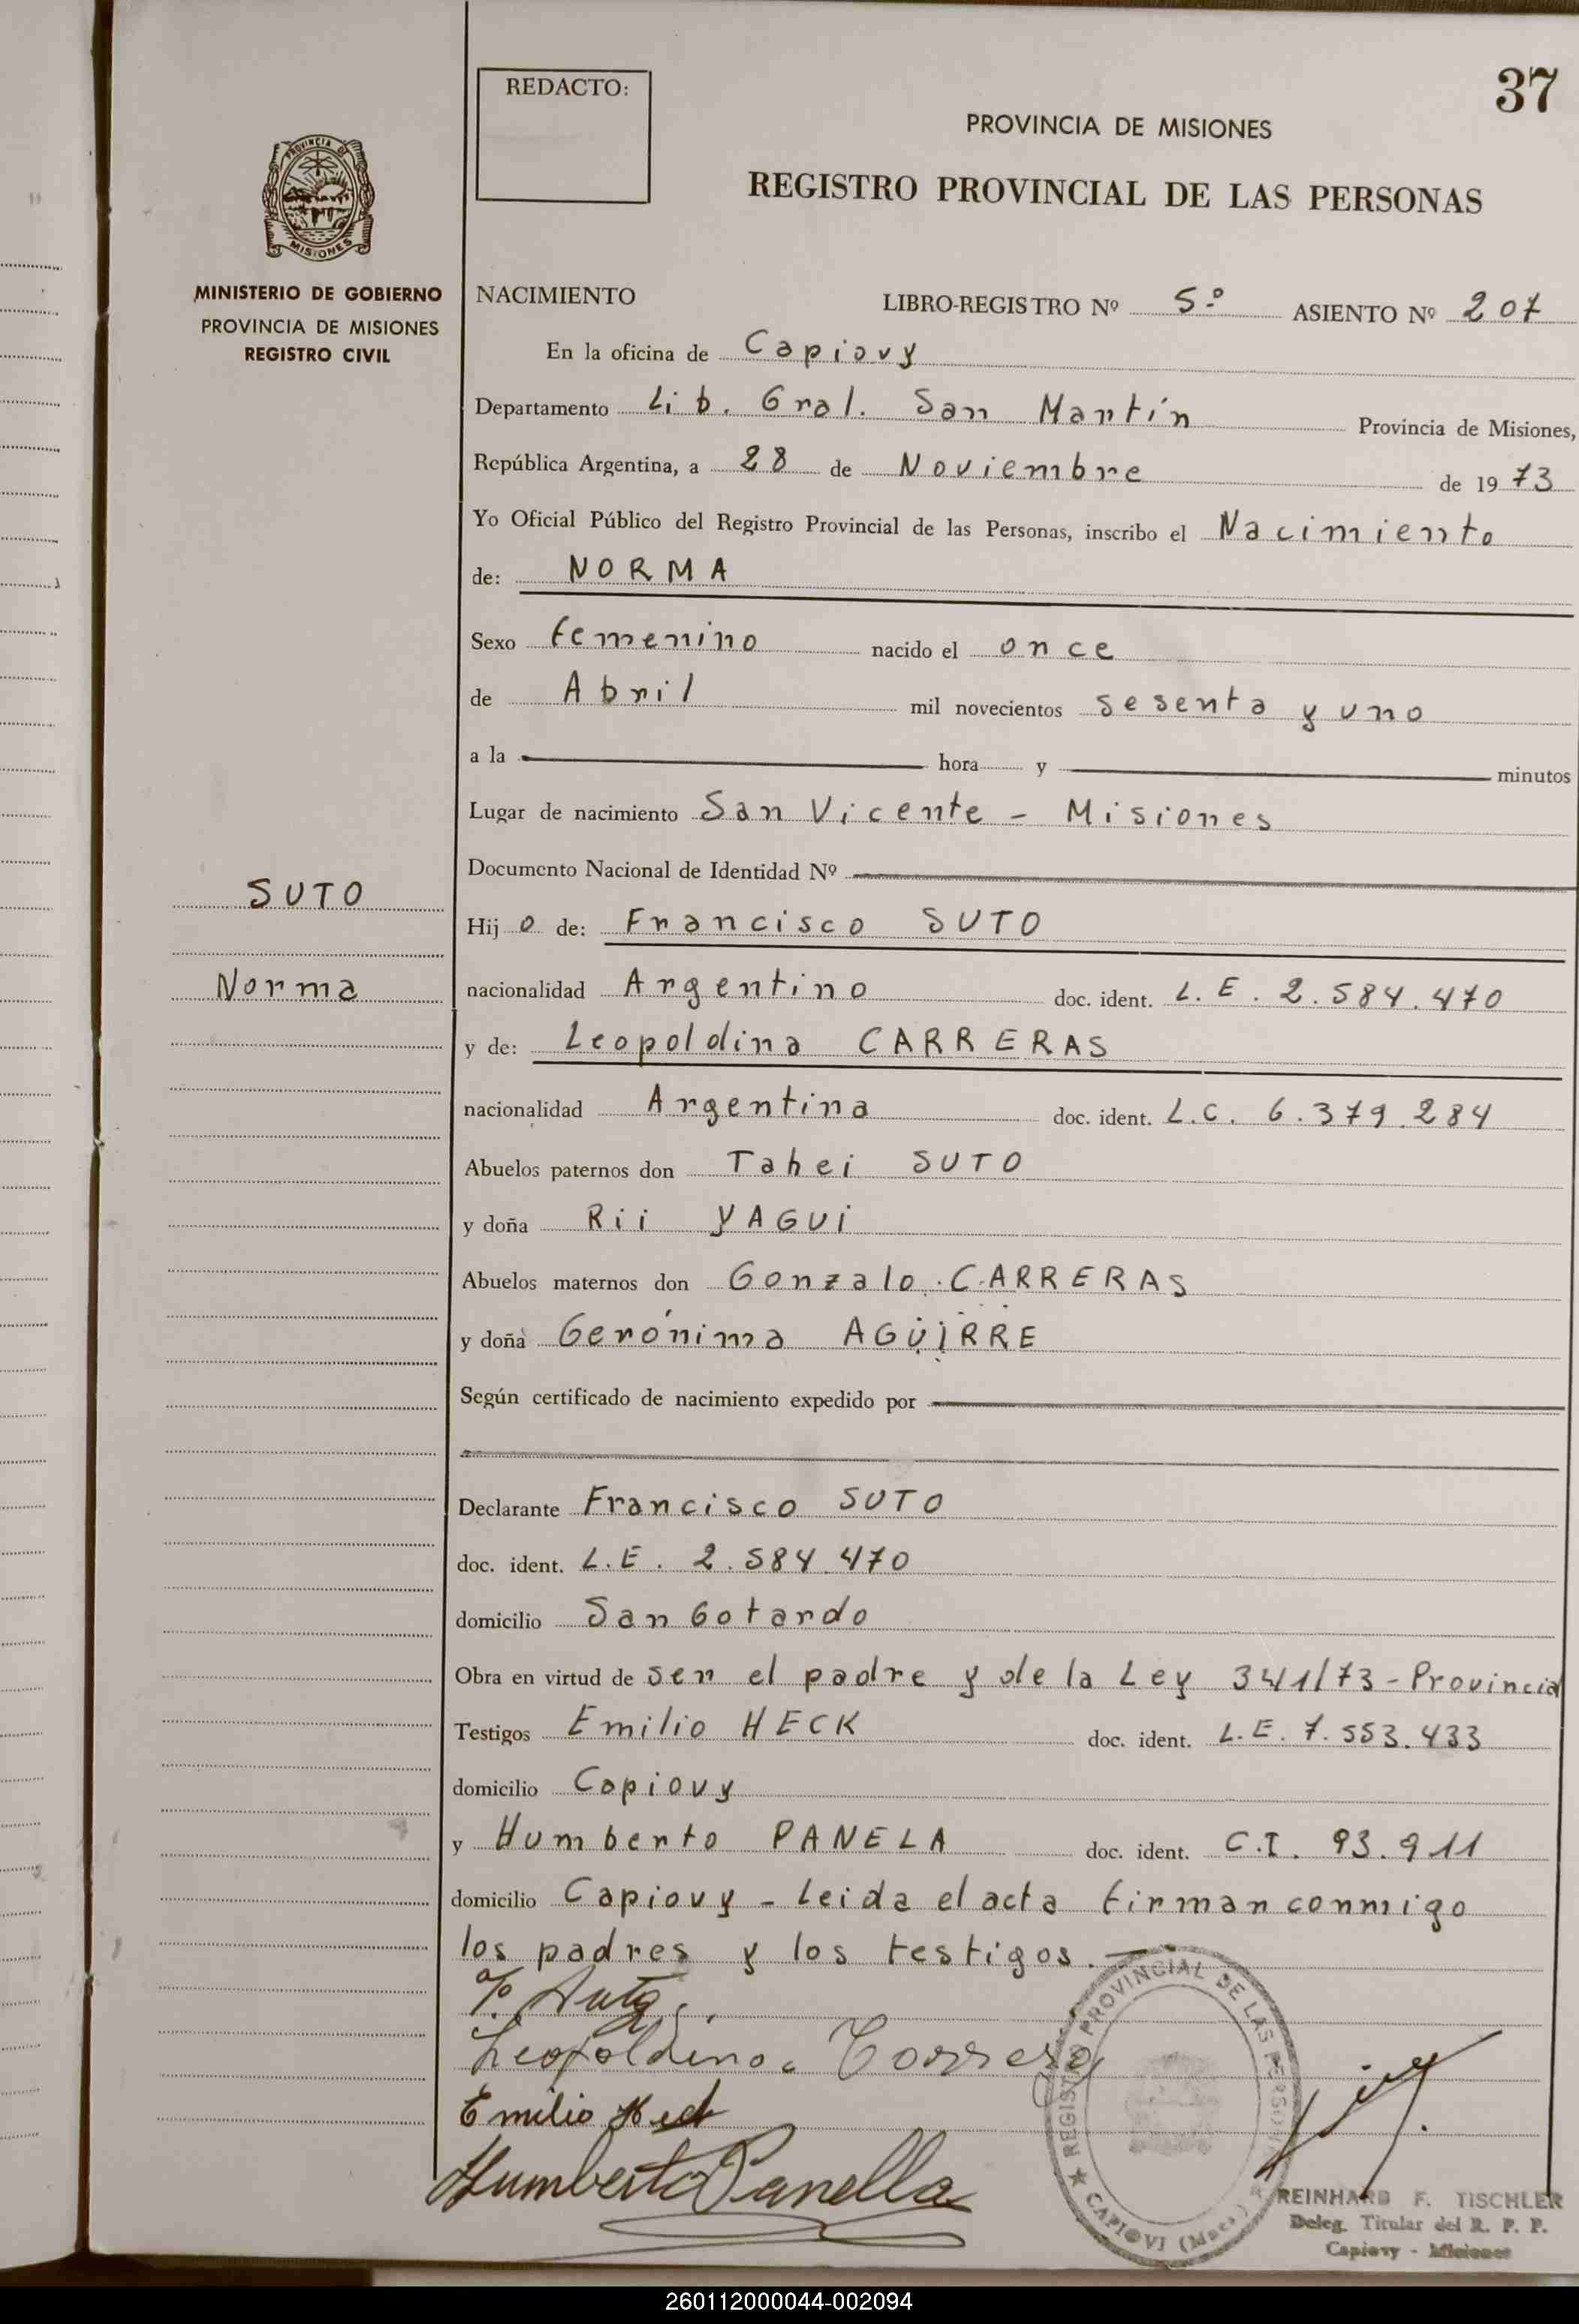 37
REDACTO:
PROVINCIA DE MISIONES
REGISTRO PROVINCIAL DE LAS PERSONAS
PROVINCIA DE
MISIONES
MINISTERIO DE GOBIERNO
PROVINCIA DE MISIONES
REGISTRO CIVIL
NACIMIENTO LIBRO-REGISTRO Nº 5º ASIENTO Nº 207
En la oficina de Capiovy
Departamento Lib. Gral. San Martín Provincia de Misiones,
República Argentina, a 28 de Noviembre de 1973
Yo Oficial Público del Registro Provincial de las Personas, inscribo el Nacimiento
de: NORMA
Sexo femenino nacido el once
de Abril mil novecientos sesenta y uno
a la hora y minutos
Lugar de nacimiento San Vicente - Misiones
Documento Nacional de Identidad Nº
SUTO
Norma
Hijo de: Francisco SUTO
nacionalidad Argentino doc. ident. L.E. 2.584.470
y de: Leopoldina CARRERAS
nacionalidad Argentina doc. ident. L.C. 6.379.284
Abuelos paternos don Tahei SUTO
y doña Rii YAGUi
Abuelos maternos don Gonzalo CARRERAS
y doña Gerónima AGÜIRRE
Según certificado de nacimiento expedido por
Declarante Francisco SUTO
doc. ident. L.E. 2.584.470
domicilio San Gotardo
Obra en virtud de ser el padre y de la Ley 341/73 - Provincia
Testigos Emilio HECK doc. ident. L.E. 7.553.433
domicilio Capiovy
y Humberto PANELA doc. ident. C.I. 93.911
domicilio Capiovy - Leida el acta firman conmigo
los padres y los testigos.
Leopoldina Carrera
Emilio Heck
Humberto Panella
REGISTRO PROVINCIAL DE LAS PERSONAS
CAPIOVI (Mnes.)
REINHARD F. TISCHLER
Deleg. Titular del R. P. P.
Capiovy - Misiones
260112000044-002094